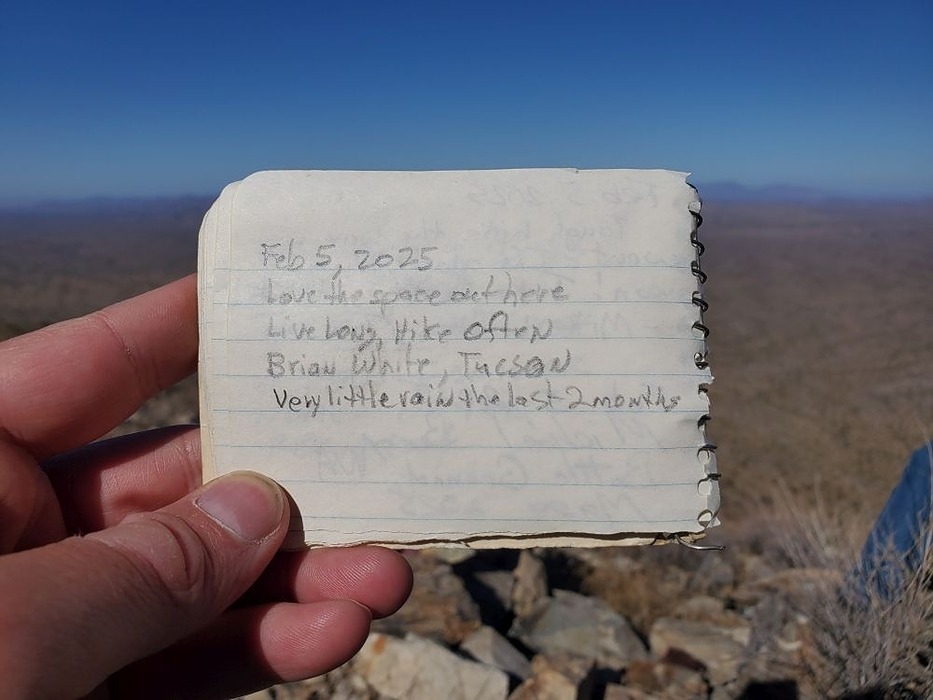 Feb 5, 2025
Love the space out here
Live Long, Hike often
Brian White, Tucson
Very little rain the last 2 months